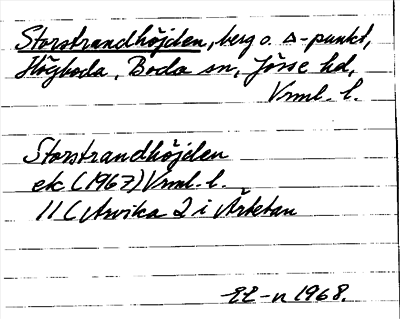 Storstrandhöjden, berg o. △-punkt,
Högboda, Boda sn, Jösse hd,
Vrml. l.
Storstrandhöjden
ek (1967) Vrml. l.
11C Arvika 2 i Årbetan
1968.